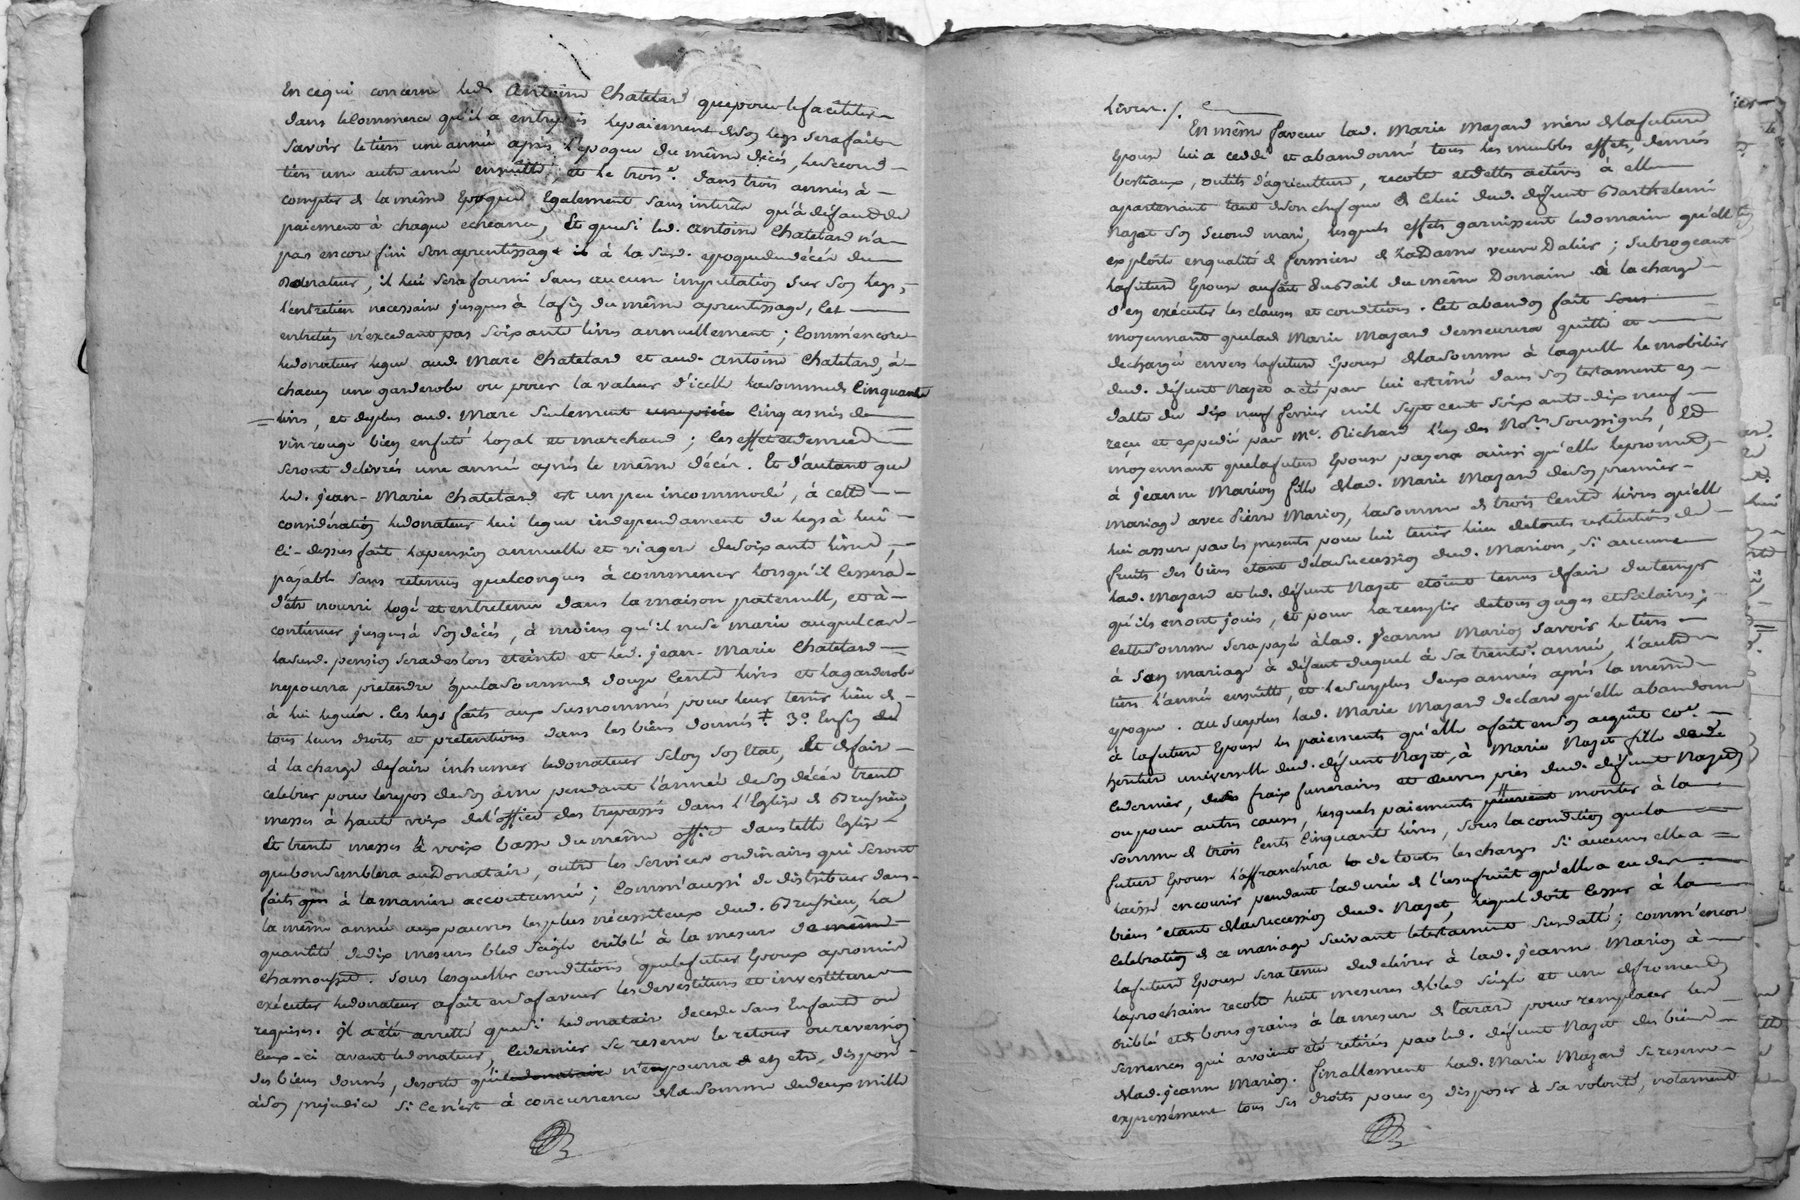 En cequi concerne led. Antoine Chatelard quepour le faciliter
dans le Commerce qu'il a entrepris le paiement deson legs sera fait
savoir le tiers une année après l'epoque du même décès, le second
tiers une autre année ensuitte, et le trois.e dans trois années à
compter de la même Epoque Egalement sans interêts qu'à défaut de
paiement à chaque echeance, Et quesi led. antoine Chatelard n'a
pas encore fini son aprentissage à la susd. epoque du décès du
Donateur, il lui sera fourni sans aucune imputation sur son legs,
l'entretien necessaire jusques à la fin du même aprentissage, Cet
entretien n'excedant pas soixante livres annuellement; Comm'encore
ledonateur legue aud. Marc Chatelard et aud. Antoine Chatelard, à
chacun une garderobe ou pour la valeur d'icelle lasomme de Cinquante
livres, et deplus aud. Marc seulement une pièce Cinq asnées de
vin rouge bien enfuté loyal et marchand; Ces effets et denrées
seront delivrés une année après le même décès. Et d'autant que
led. jean-Marie Chatelard est un peu incommodé, à cette
considération ledonateur lui legue independament du legs à lui
Ci-dessus fait lapension annuelle et viagere desoixante livres,
païable sans retenues quelconques à commencer lorsqu'il Cessera
d'être nourri logé et entretenu dans la maison paternelle, et à
continuer jusques à son décès, à moins qu'il nese marie auquel cas
lasusd. pension sera des lors eteinte et led. jean-Marie Chatelard
ne pourra prétendre quela somme de douze Cents livres et la garderobe
à lui leguée. Ces legs faits aux susnommés pour leur tenir lieu de
tous leurs droits et pretentions dans les biens donnés 3.o Enfin
à la charge defaire inhumer ledonateur selon son Etat, Et defaire
celebrer pour lerepos deson ame pendant l'année deson décès trente
messes à haute voix del'office des trepassés dans l'Eglise de Brussieu,
Et trente messes à voix basse du même office dans telle Eglise
que bon semblera au Donataire, outre les services ordinaires qui seront
faits à la maniere accoutumée; Comm'aussi de distribuer dans
la même année aux pauvres les plus nécessiteux dud. Brussieu, la
quantité dedix mesures bled seigle criblé à la mesure de même
Chamousset. Sous lesquelles conditions quele futur Epoux a promis
exécuter ledonateur afait en sa faveur les devestitures et investitures
requises. Il a été arretté quesi ledonataire decede sans Enfants ou
Ceux-ci avant ledonateur, Cedernier se reserve le retour ou reversion
des biens donnés, desorte qu'il ledonataire n'en pourra en etre disposé
àson prejudice si Ce n'est à concurrence dela somme dedeux mille
livres./.
En même faveur lad. Marie Mazard mere dela future
Epouse lui a cedé et abandonné tous les meubles effets, denrées
bestiaux, outils d'agriculture, recolte et dettes actives à elle
apartenant tant deson chef que de Celui dud. défunt Barthelemi
Razet son second mari, lesquels effets garnissent ledomaine qu'elle
exploite en qualité de fermiere de la Dame veuve Daliés; subrogeant
lafuture Epouse aufait du Bail du même Domaine à la charge
d'en exécuter les clauses et conditions. Cet abandon fait sous
moyennant quelad. Marie Mazard demeurera quitte et
dechargée envers lafuture Epouse dela somme à laquelle le mobilier
dud. défunt Razet a été par lui estimé dans son testament en
datte du dix neuf fevrier mil sept cent soixante-dix neuf
reçu et expedié par Me. Richard l'un des No.res Soussignés, Et
moyennant quela future Epouse payera ainsi qu'elle lepromet
à jeanne Marion fille delad. Marie Mazard deson premier
mariage avec Pierre Marion, la somme de trois Cents livres qu'elle
lui assure par les presents pour lui tenir lieu detoute restitution de
fruits des biens étant dela succession dud. Marion, si aucune
lad. Mazard et led. défunt Razet etoient tenus defaire du temps
qu'ils en ont joui, et pour la remplir de tous gages et salaires;
Cette somme sera payée à lad. jeanne Marion savoir le tiers
à son mariage à défaut duquel à sa trente.e année, l'autre
tiers l'année ensuitte, et lesurplus deux années après la même
epoque. au surplus lad. Marie Mazard declare qu'elle abandonne
à lafuture Epouse les paiements qu'elle afait en son acquit co.e
héritiere universelle dud. défunt Razet, à Marie Razet fille de
cedernier, des fraix funeraires et œuvres pies dud. défunt Razet
ou pour autres causes, lesquels paiements peuvent monter à la
somme de trois Cents Cinquante livres, sous la condition quela
future Epouse l'affranchira de toutes les charges si aucunes elle a
laissé encourir pendant ladurée de l'usufruit qu'elle a eu des
biens étant dela succession dud. Razet, lequel doit Cesser à la
Celebration de ce mariage suivant letestament susdatté; comm'encore
lafuture Epouse sera tenue dedelivrer à lad. jeanne Marion à
la prochaine recolte huit mesures debled seigle et une defroment
criblé et de bons grains à la mesure de tarare pour remplacer les
semences qui avoient été retirées par led. défunt Razet des biens
delad. jeanne Marion. Finallement lad. Marie Mazard se reserve
expressément tous ses droits pour en disposer à sa volonté, notament